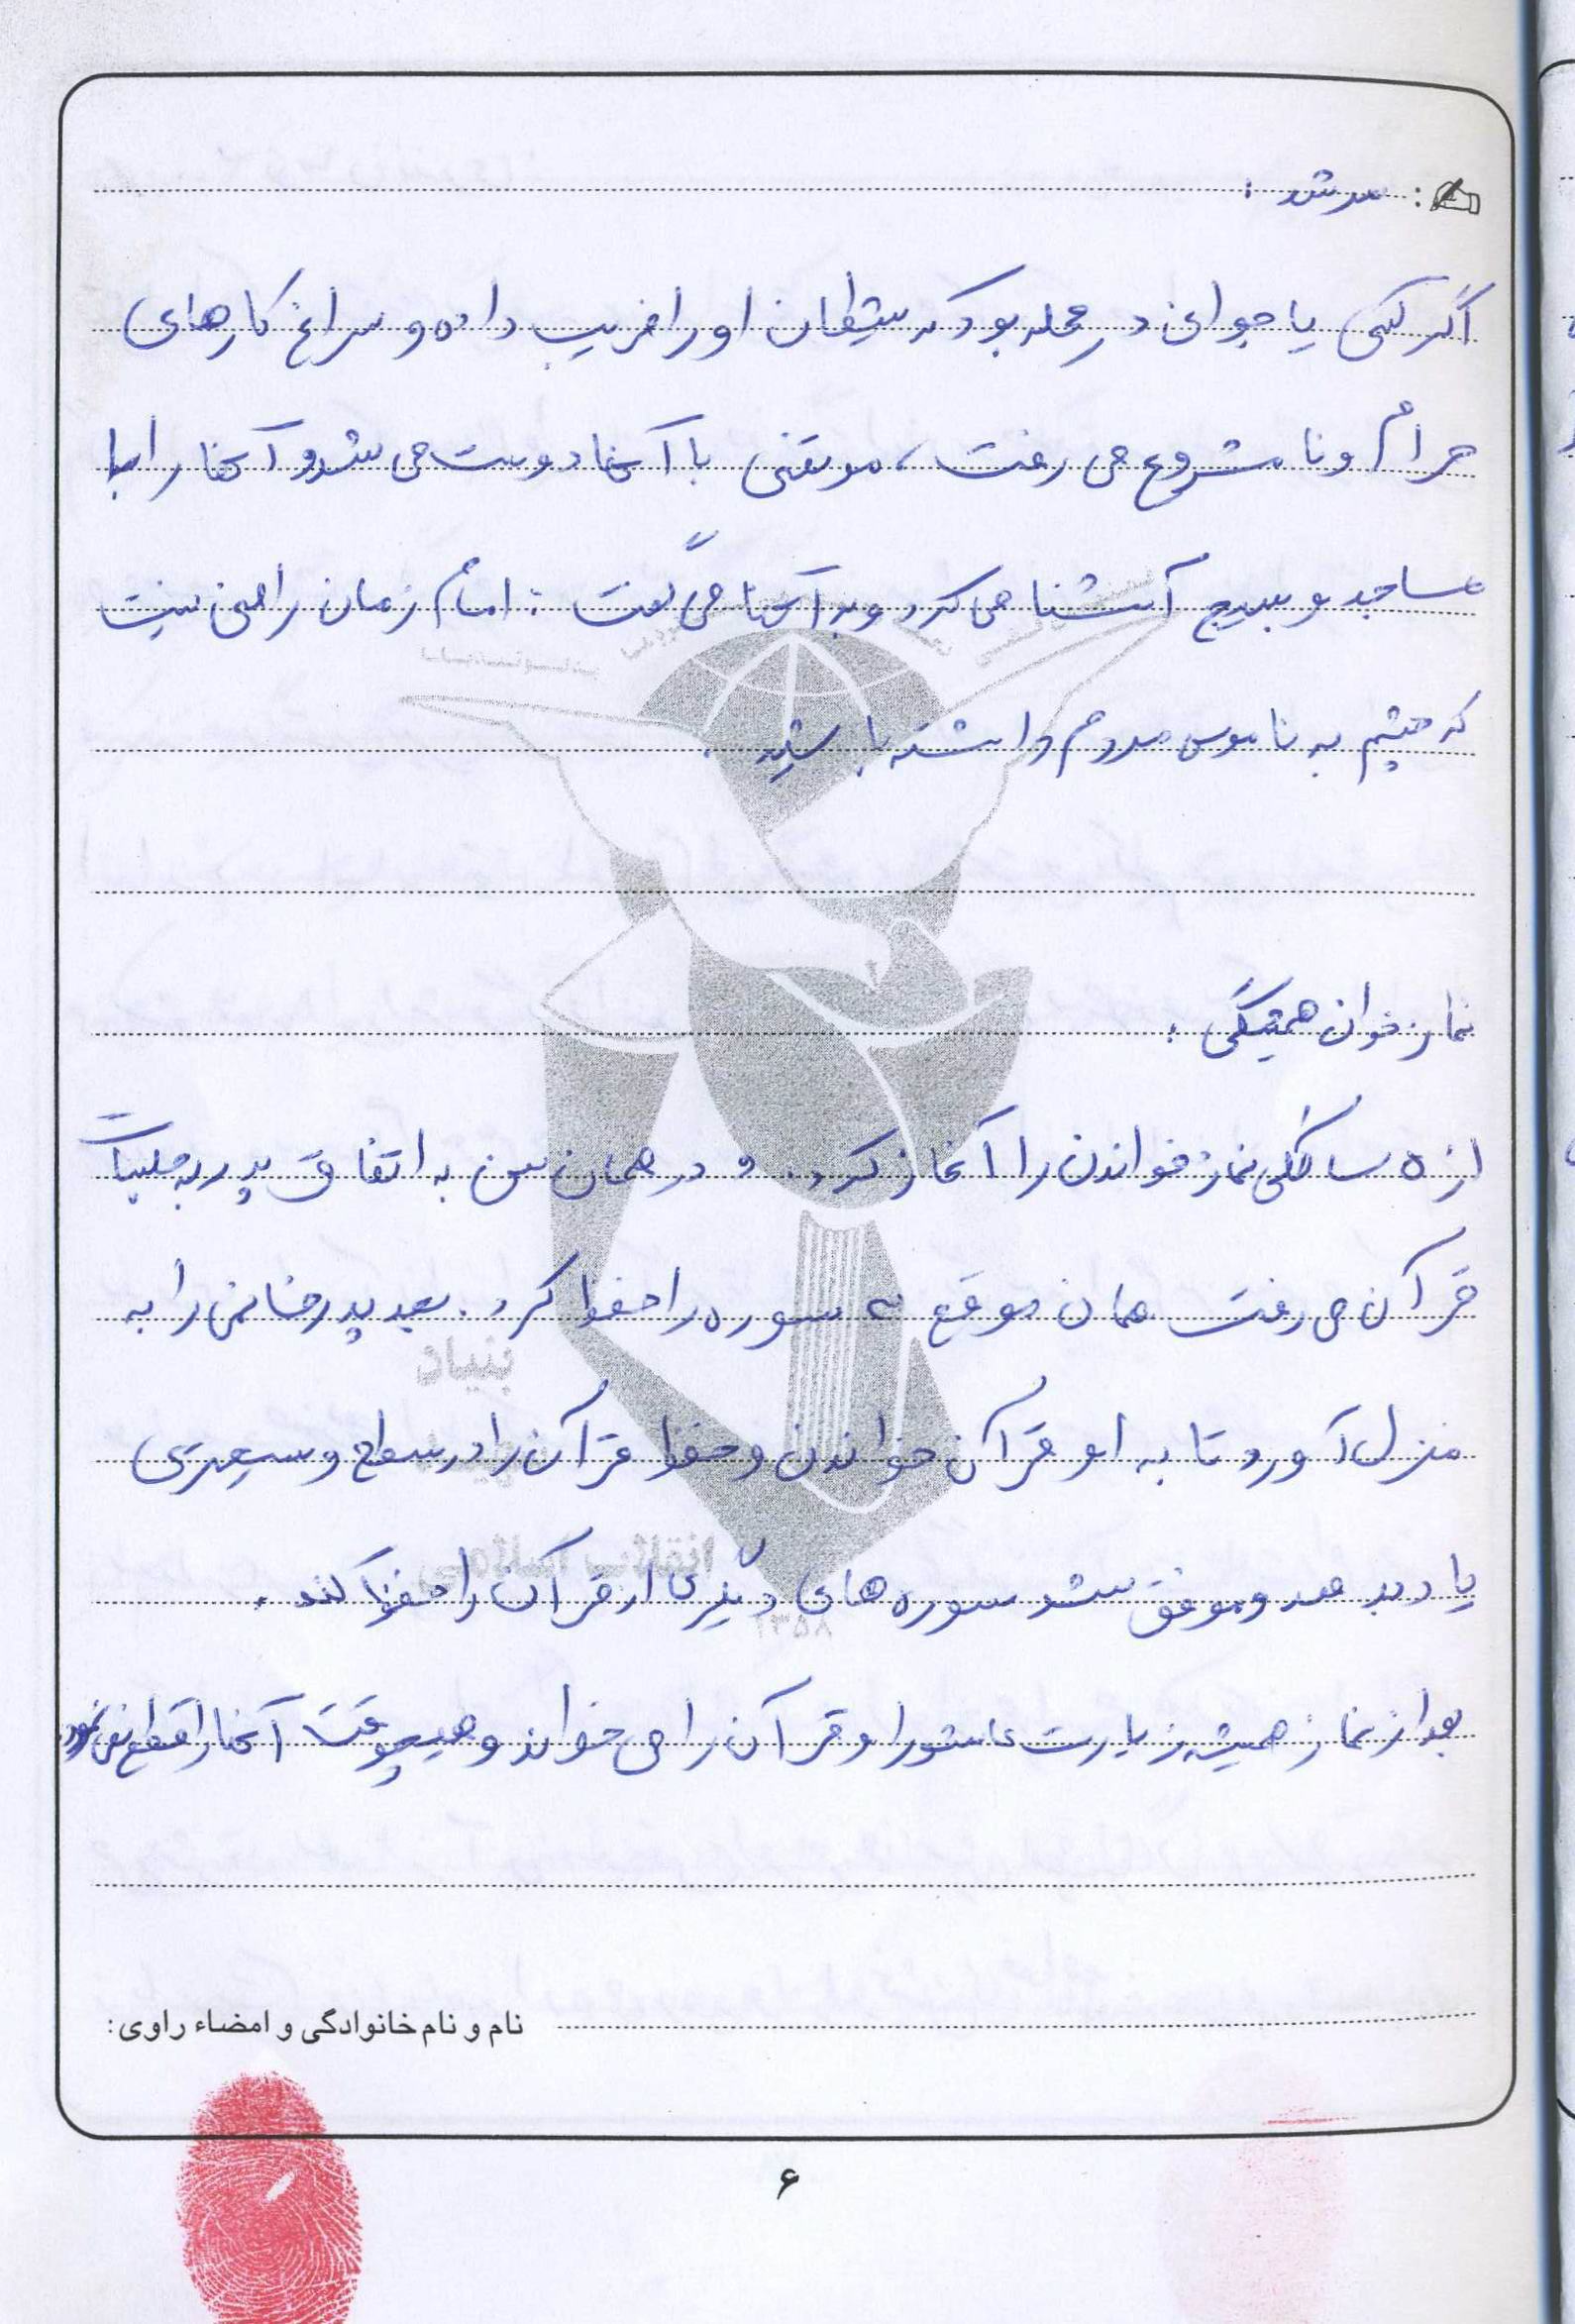 مرشد :
اگر کسی یا جوانی در محله بود که شیطان او را فریب داده و سراغ کارهای
حرام و نامشروع می رفت، مرتضی با آنها دوست می شد و آنها را با
مساجد و بسیج آشنا می کرد و به آنها می گفت : امام زمان راضی نیست
که چشم به ناموس مردم داشته باشید .
نماز خوان همیشگی :
از ۵ سالگی نماز خواندن را آغاز کرد. و در همان سن به اتفاق پدر به جلسات
قرآن می رفت همان موقع ۳ سوره را حفظ کرد. بعد پدر خانمی را به
منزل آورد تا به او قرآن خواندن و حفظ قرآن را در سطح وسیعتری
یاد بدهد و موفق شد سوره های دیگری از قرآن را حفظ کند .
بعد از نماز همیشه زیارت عاشورا و قرآن را می خواند و هیچوقت آنها را قطع نمی نمود
نام و نام خانوادگی و امضاء راوی:
۶
بنیاد
انقلاب اسلامی
۱۳۵۸